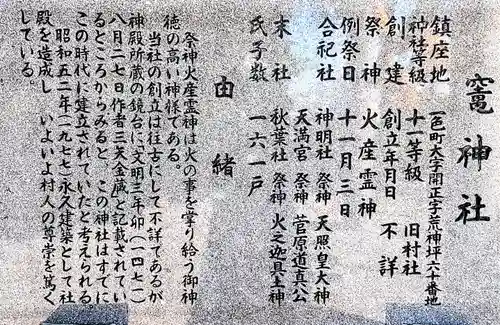 竈神社
鎮座地 一色町大字開正字荒神坪六十番地
神社等級 十一等級 旧村社
創建 創立年月日 不詳
祭神 火産霊神
例祭日 十一月三日
合祀社 神明社 祭神 天照皇大神
天満宮 祭神 菅原道真公
末社 秋葉社 祭神 火之迦具土神
氏子数 一六一戸
由緒
祭神火産霊神は火の事を掌り給う御神
徳の高い神様である。
当社の創立は往古にして不詳であるが
神殿所蔵の鏡台に文明三年卯(一四七一)
八月二七日作者三矢金蔵と記載されてい
るところからみると、この神社はすでに
この時代に建立されていたと考えられる。
昭和五二年(一九七七)永久建築として社
殿を造成し いよいよ村人の尊崇を篤く
している。